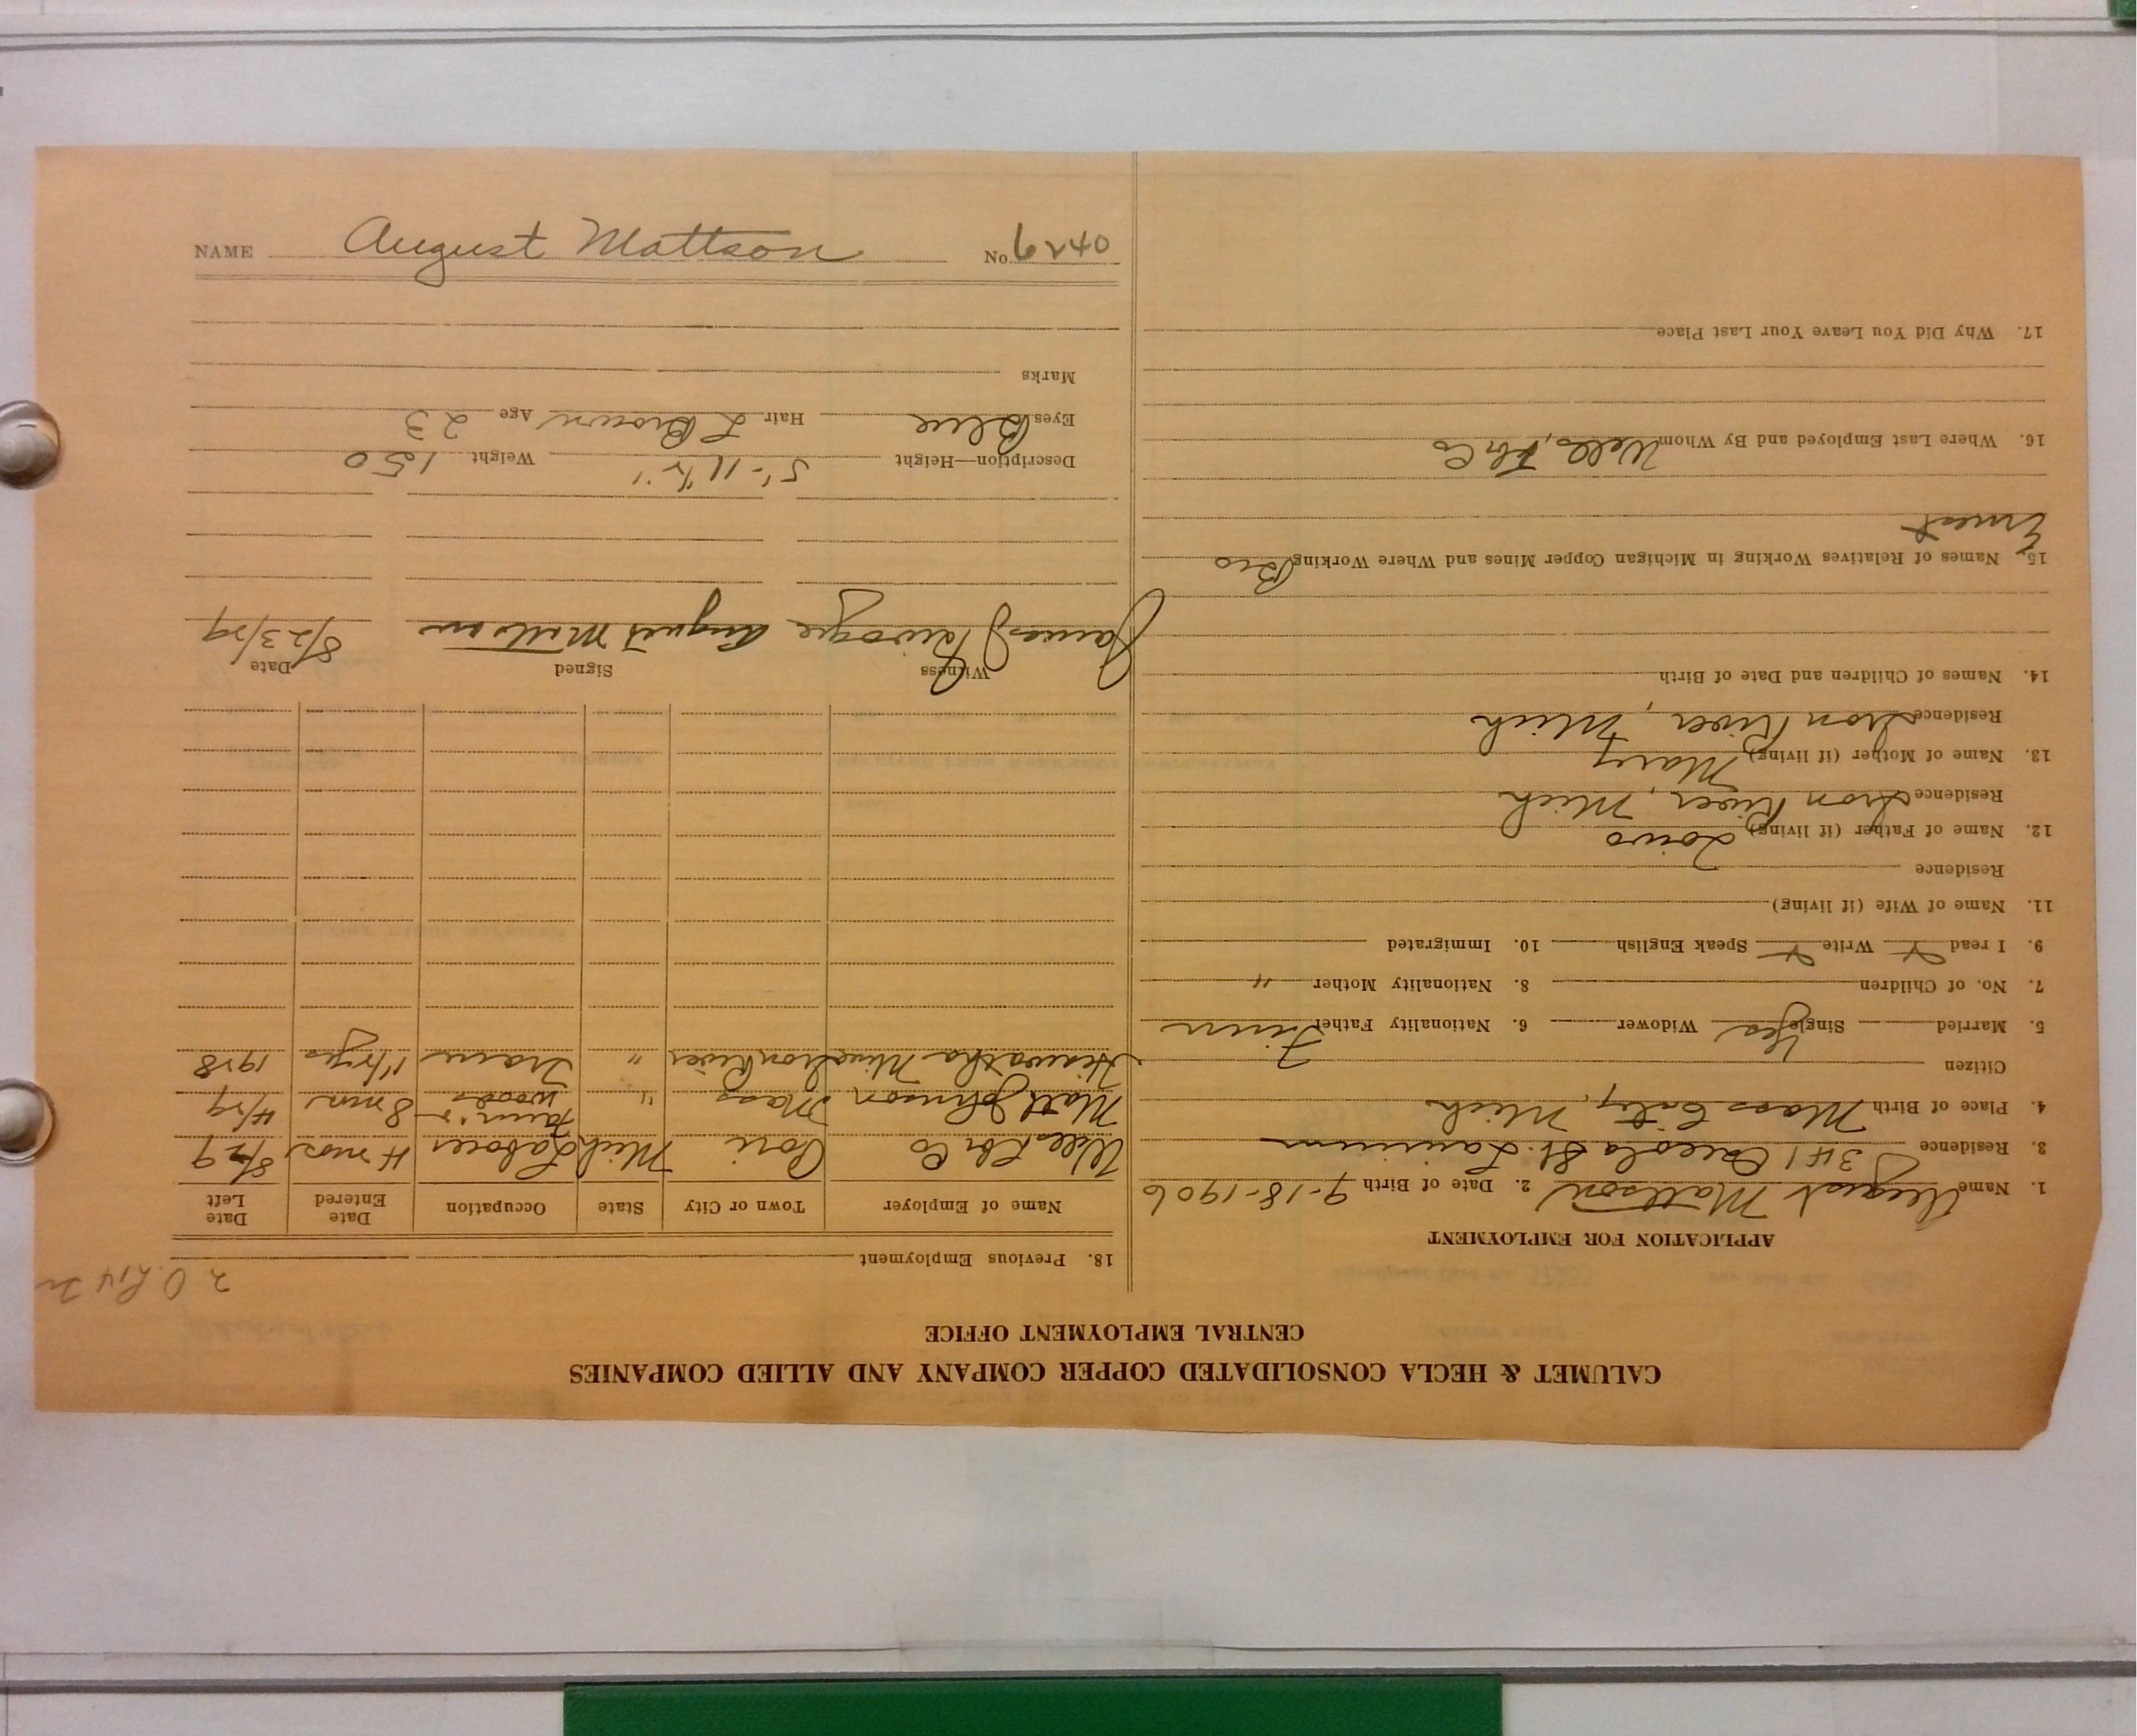 CALUMET & HECLA CONSOLIDATED COPPER COMPANY AND ALLIED COMPANIES
CENTRAL EMPLOYMENT OFFICE
APPLICATION FOR EMPLOYMENT
1. Name August Mattson 2. Date of Birth 9-18-1906
3. Residence 341 Osceola St. Laurium
4. Place of Birth Mass City, Mich
Citizen
5. Married Single Yes Widower 6. Nationality Father Finn
7. No. of Children 8. Nationality Mother "
9. I read Write Speak English 10. Immigrated
11. Name of Wife (if living)
Residence
12. Name of Father (if living)
Residence Iron River, Mich
13. Name of Mother (if living) Mary
Residence Iron River, Mich
14. Names of Children and Date of Birth
15. Names of Relatives Working in Michigan Copper Mines and Where Working Bro
Ernest
16. Where Last Employed and By Whom Wells, Lbr Co
17. Why Did You Leave Your Last Place
18. Previous Employment
Name of Employer Town or City State Occupation Date Entered Date Left
Wells Lbr Co Mich Laborer 4 mos 8/29
Matt Johnson Mass " Farm & woods 8 mn 4/29
Hiawatha Mine Iron River " Tram 1½ yrs 1928
Witness Signed Date
James August Mattson 8/23/29
Description—Height 5'-11½" Weight 150
Eyes Blue Hair L Brown Age 23
Marks
NAME August Mattson No. 6240